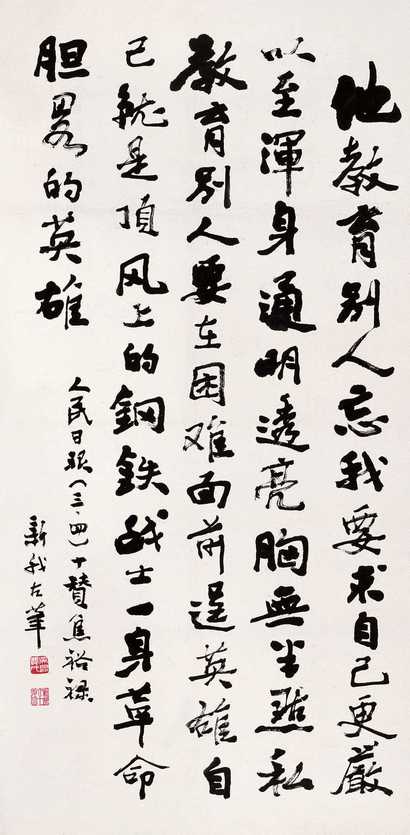 他教育别人忘我要求自己更嚴
以至渾身通明透亮胸無半點私
教育别人要在困难面前逞英雄自
己就是頂风上的鋼鉄战士一身革命
胆畧的英雄
人民日报（三·四）十赞焦裕禄
新我左筆